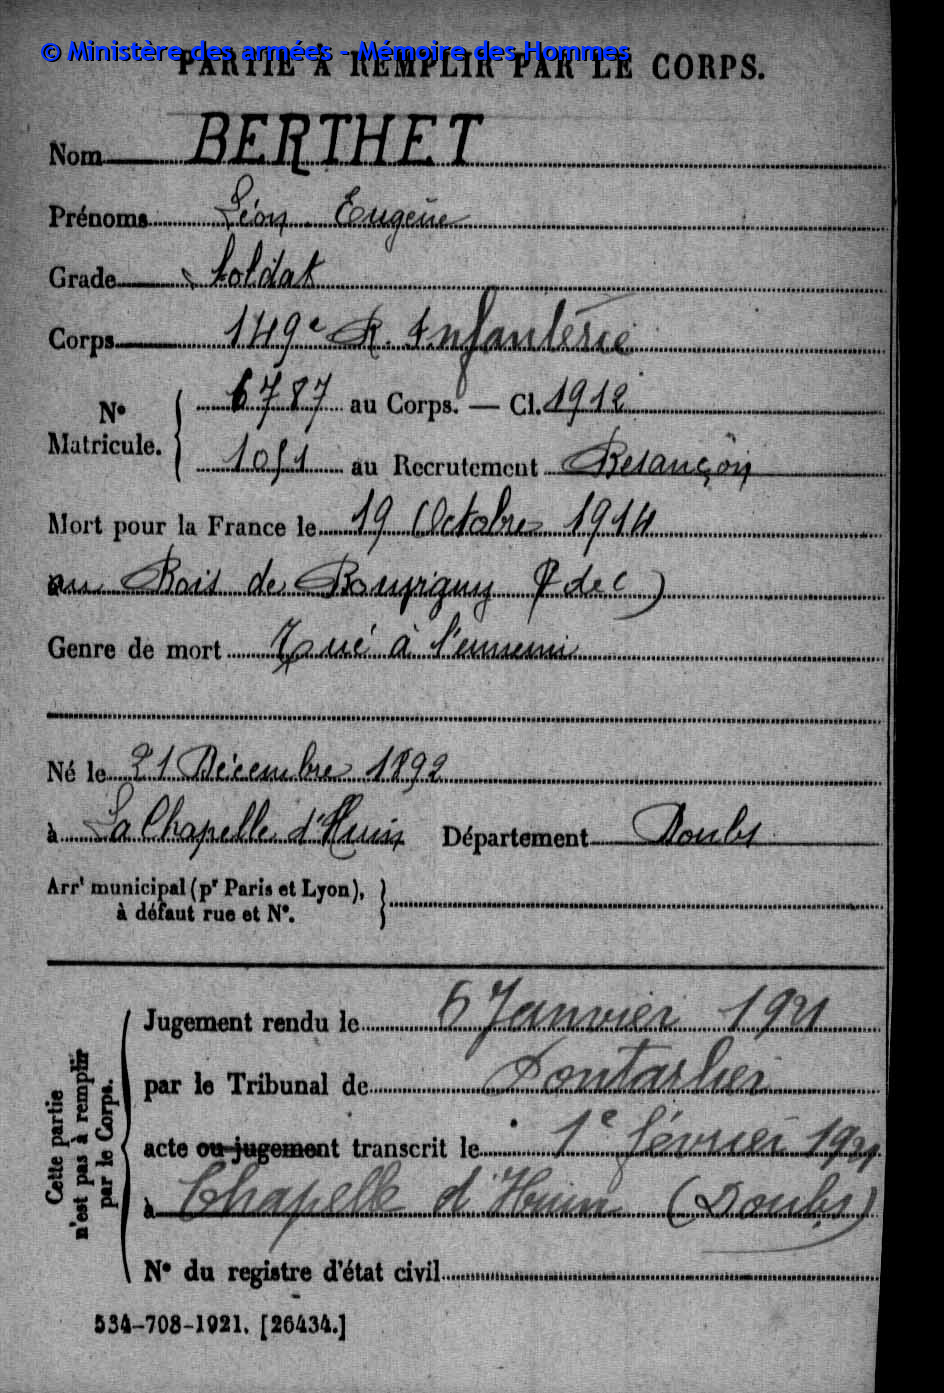 © Ministère des armées - Mémoire des Hommes
PARTIE À REMPLIR PAR LE CORPS.
Nom BERTHET
Prénoms Léon Eugène
Grade Soldat
Corps 149e R. Infanterie
N° Matricule. 6787 au Corps. — Cl. 1912
1051 au Recrutement Besançon
Mort pour la France le 19 Octobre 1914
au Bois de Bouvigny (P de C)
Genre de mort Tué à l'ennemi
Né le 21 Décembre 1892
à La Chapelle d'Huin Département Doubs
Arrt municipal (pr Paris et Lyon),
à défaut rue et N°.
Cette partie n'est pas à remplir par le Corps.
Jugement rendu le 6 Janvier 1921
par le Tribunal de Pontarlier
acte ou jugement transcrit le 1e février 1921
à Chapelle d'Huin (Doubs)
N° du registre d'état civil
534-708-1921. [26434.]